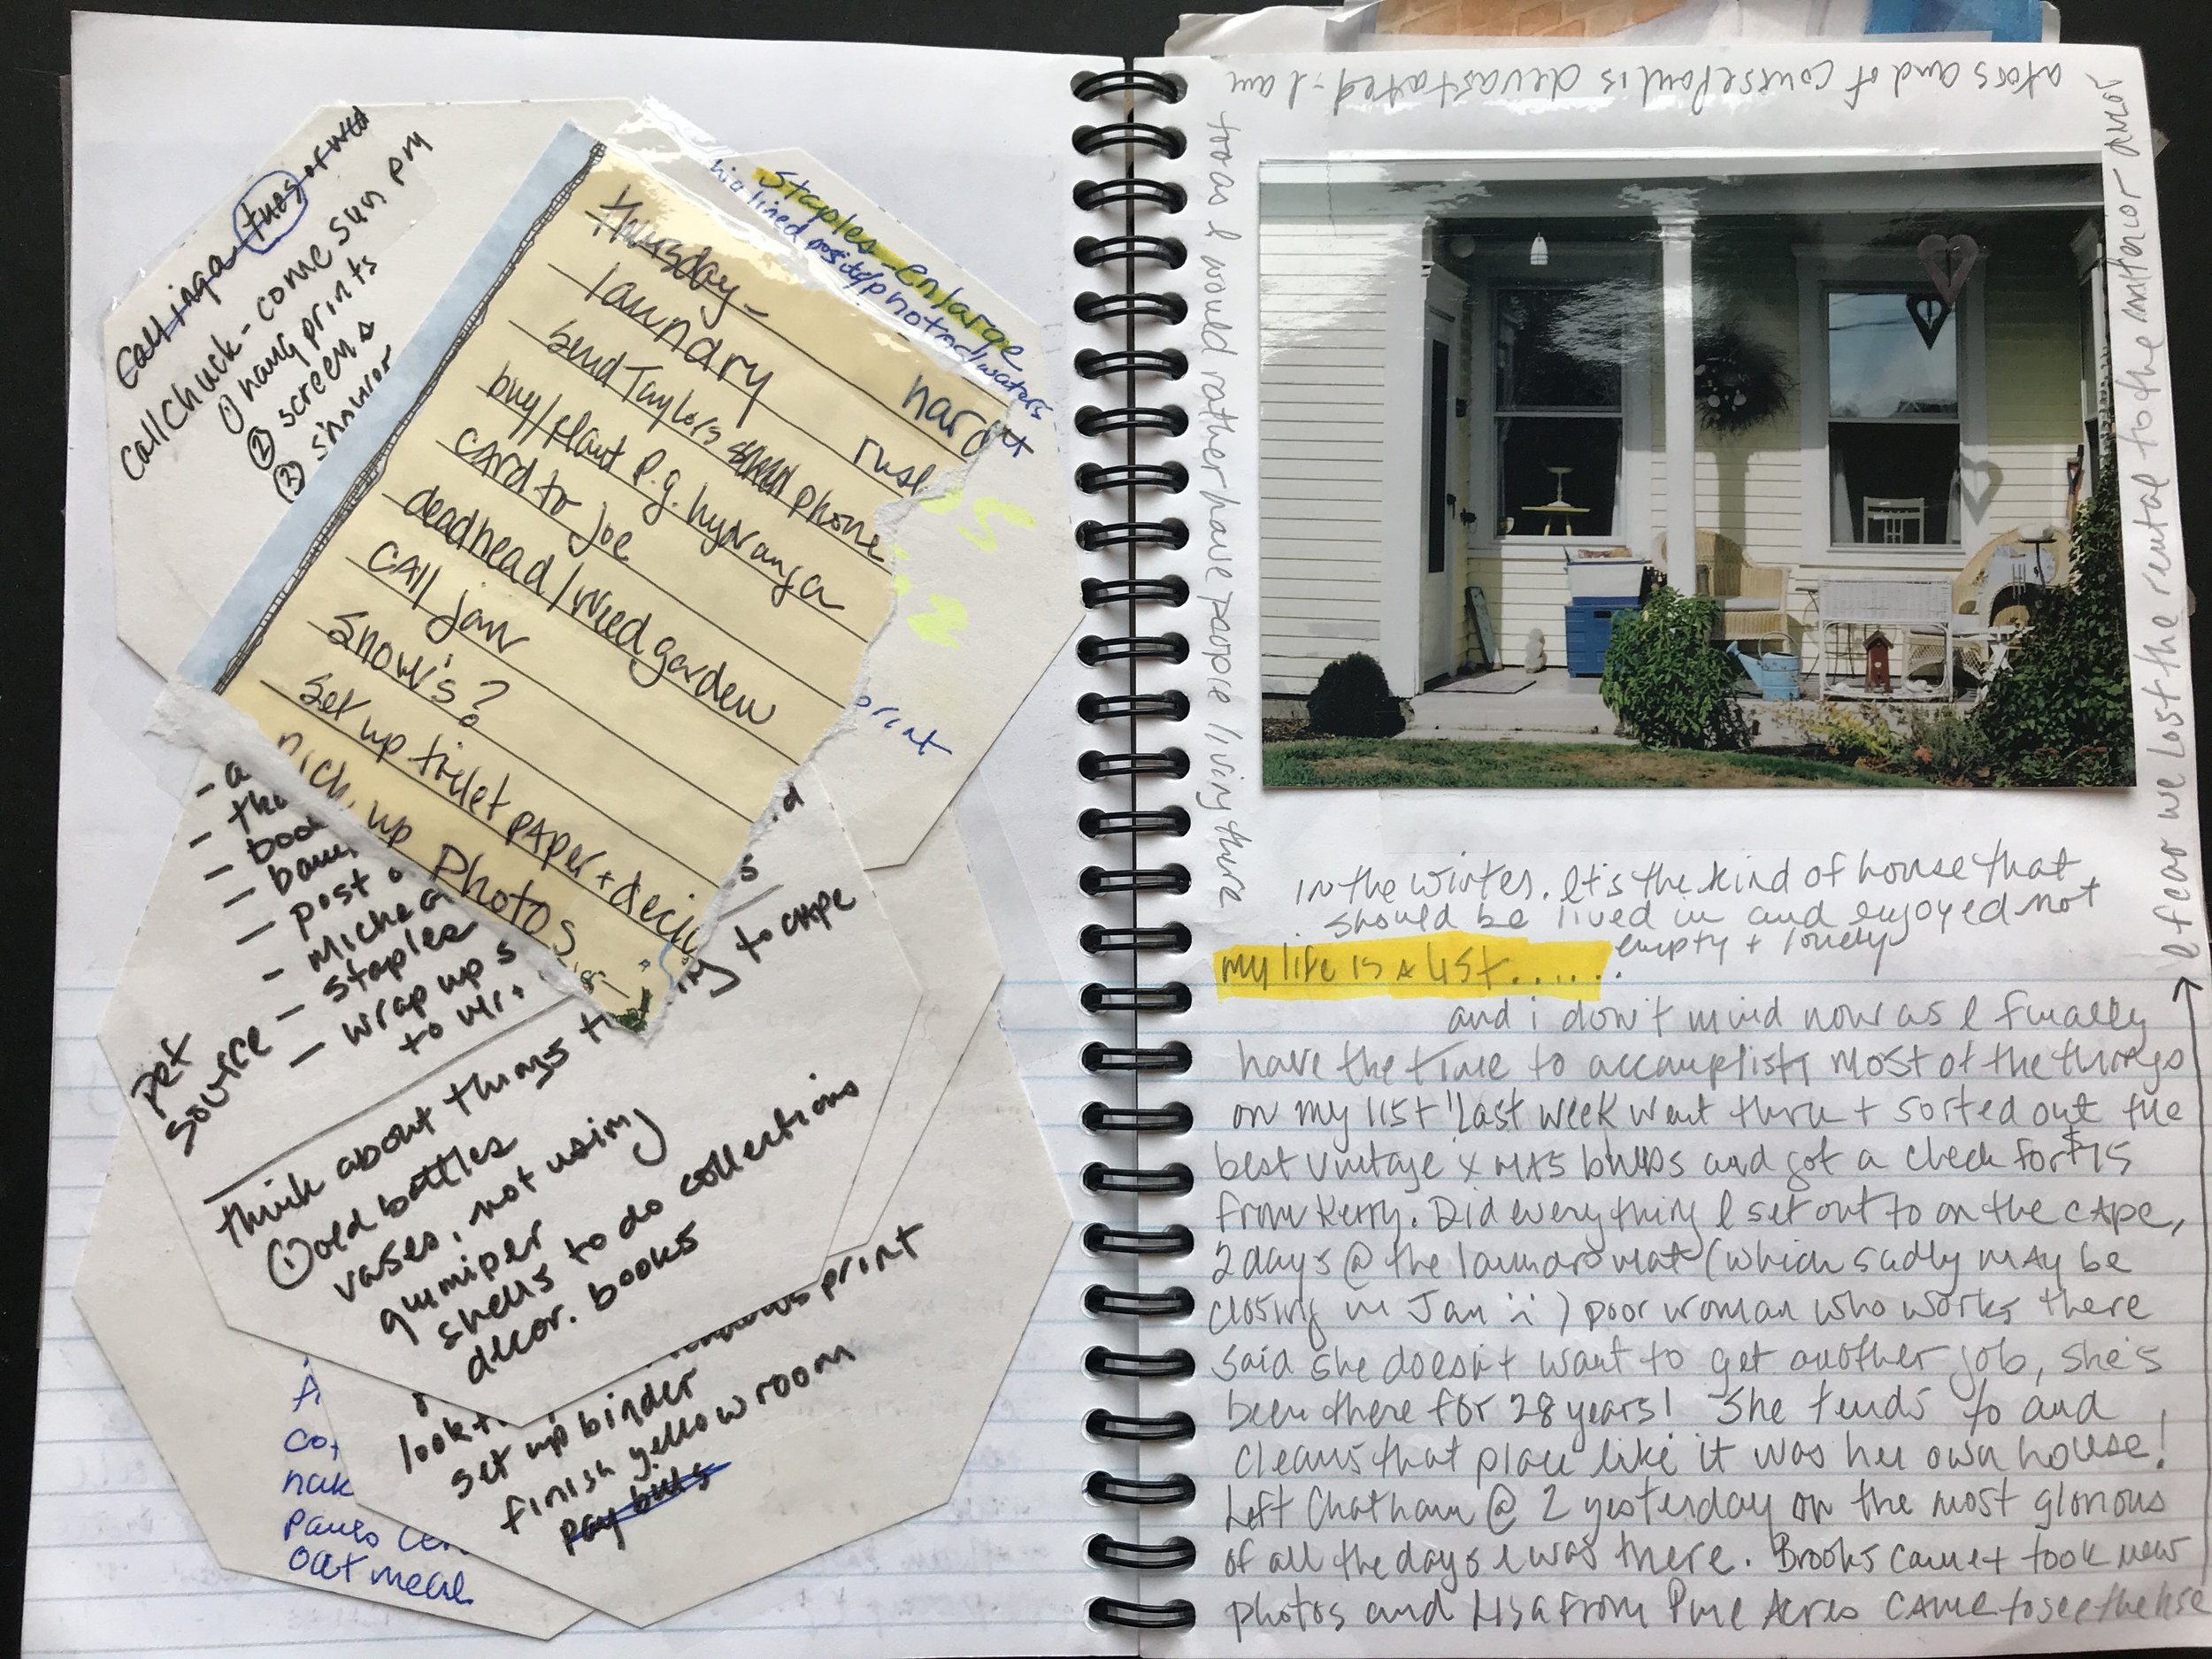 call inga - tues or wed
call Chuck - come sun pm
① hang prints
② screens
③
Staples - enlarge
lined
print
Thursday -
laundry
send Taylors phone
buy/plant p.g. hydranga
card to joe
deadhead/weed garden
CALL jan
Snow's?
set up toilet paper + decor
pick up photos
- post
- Michea
- staples
- wrap up s
pet
source
to cape
think about things
① old bottles
vases, not using
shells to do collections
decor. books
print
set up binder
finish yellow room
pay bills
oatmeal
in the winter. It's the kind of house that
should be lived in and enjoyed not
empty + lonely
my life is a list......
and i don't mind now as I finally
have the time to accomplish most of the things
on my list! Last week went thru + sorted out the
best vintage xmas bulbs and got a check for $15
from Kerry. Did everything I set out to on the cape,
2 days @ the laundromat (which sadly may be
closing in Jan :( ) poor woman who works there
said she doesn't want to get another job, she's
been there for 28 years! She tends to and
cleans that place like it was her own house!
Left Chatham @ 2 yesterday on the most glorious
of all the days I was there. Brooks came + took new
photos and Lisa from Pine Acres came to see the hse
I fear we lost the rental to the interior
ators and of course Paul is devastated - I am
too as I would rather have people living there